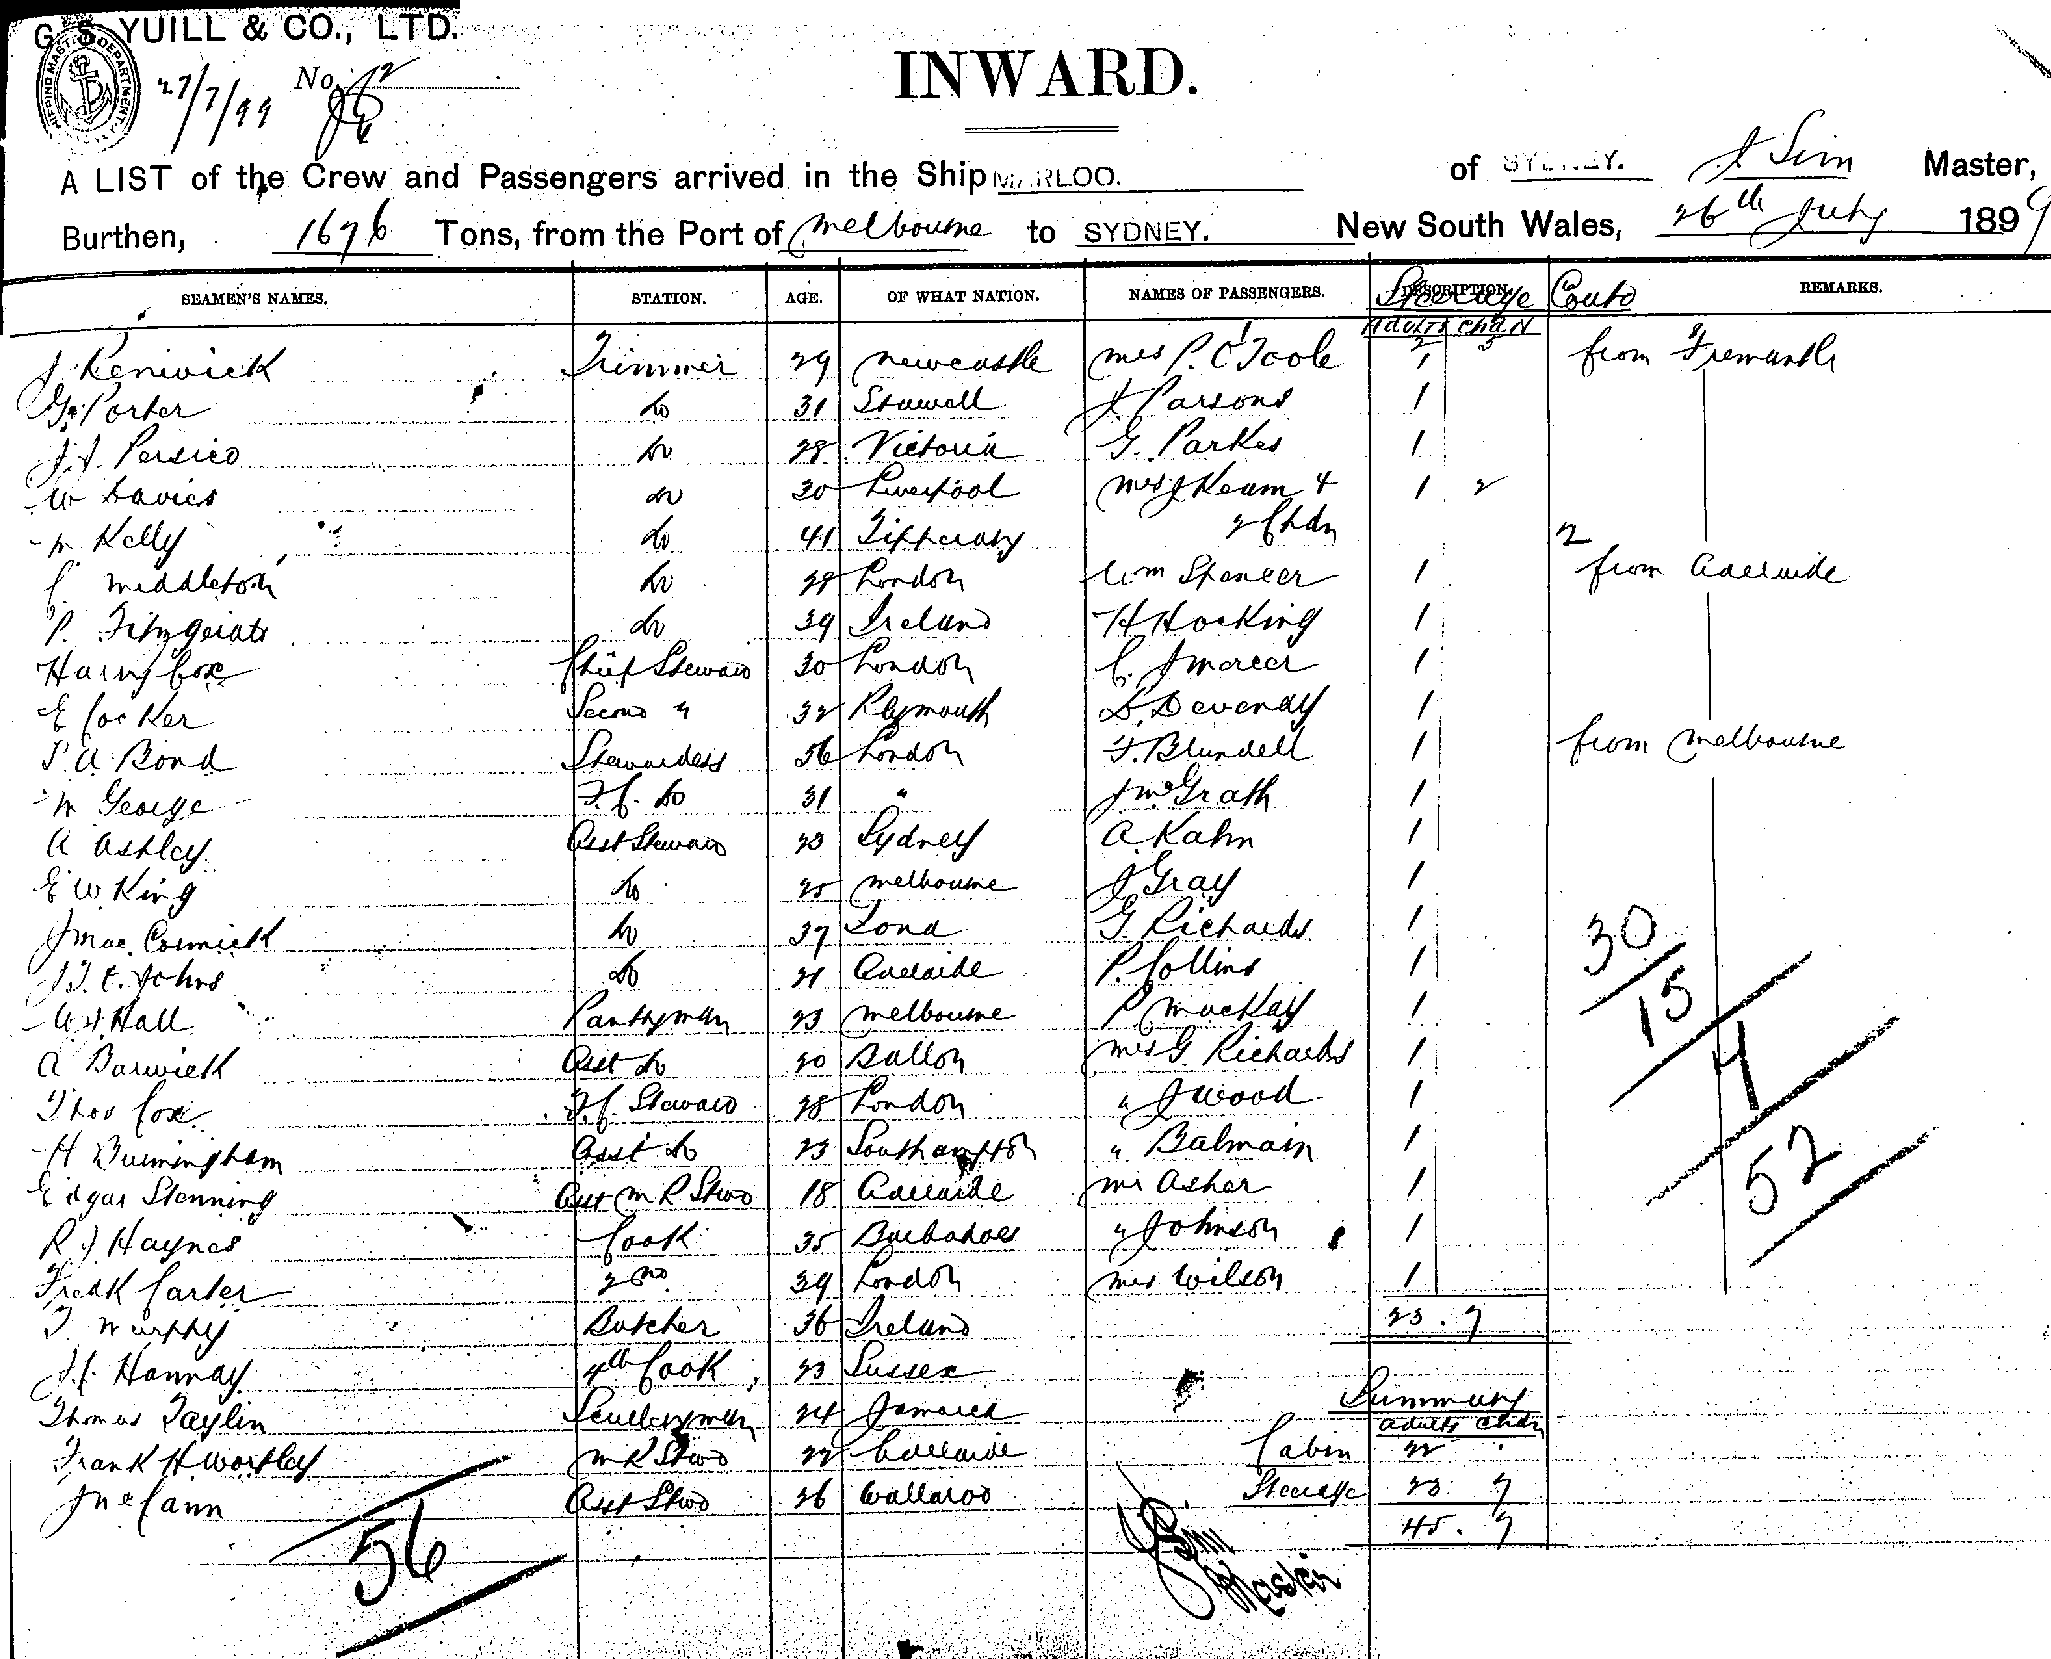 G. S. YUILL & CO., LTD.
27/7/99 No.
INWARD.
A LIST of the Crew and Passengers arrived in the Ship MARLOO. of SYDNEY. J Sim Master,
Burthen, 1676 Tons, from the Port of Melbourne to SYDNEY. New South Wales, 26th July 1899
SEAMEN'S NAMES. STATION. AGE. OF WHAT NATION. NAMES OF PASSENGERS. DESCRIPTION REMARKS.
Steerage Contd
Adults Chdn
2 5
J Renwick Trimmer 29 Newcastle Mrs P. O'Toole 1 from Fremantle
G. Porter do 31 Stawell J Parsons 1
J.J. Persico do 28 Victoria G. Parkes 1
W Davies do 30 Liverpool Mrs J Keam & 1 2
2 Chdn
M Kelly do 41 Tipperary
2
C. Middleton do 28 London Wm Spencer 1 from Adelaide
P. Fitzgerald do 39 Ireland H Hocking 1
Harry Cox Chief Steward 30 London C. J Mercer 1
E Cocker Second " 32 Plymouth D. Devendy 1
P. A Bond Stewardess 56 London F. Blundell 1 from Melbourne
M George F.C. do 31 " J McGrath 1
A Ashley Asst Steward 23 Sydney A. Kahn 1
E W King do 25 Melbourne J Gray 1
J Mac Cormick do 37 Lond G Richards 1
J.T.C. Johns do 21 Adelaide P. Collins 1
W J Hall Pantryman 23 Melbourne P MacKay 1
A Barwick Asst do 20 Mrs G. Richards 1
Thos Cox F.C. Steward 28 London " J Wood 1
H Burmingham Asst do 23 Southampton " Balmain 1
Edgar Stenning Asst M R Stwd 18 Adelaide Mr Asher 1
R J Haynes Cook 35 Barbadoes " Johnson 1
Fredk Carter 2nd 39 London Mrs Wilson 1
T Murphy Butcher 36 Ireland 23. 7
J.C. Hannay 4th Cook 23 Sussex
Summary
Thomas Taylin Sculleryman 24 Jamaica
Adults Chdn
Frank H Wortley M R Stwd 22 Adelaide Cabin 22
J McCann Asst Stwd 26 Wallaroo Steerage 23. 7
45. 7
30
15
4
52
56
J Sim
Master